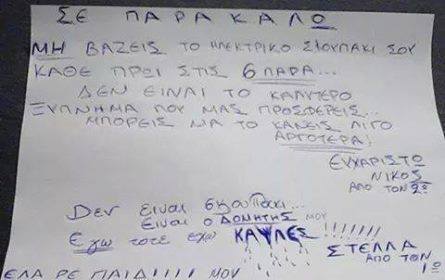 ΣΕ ΠΑΡΑΚΑΛΩ
ΜΗ ΒΑΖΕΙΣ ΤΟ ΗΛΕΚΤΡΙΚΟ ΣΚΟΥΠΑΚΙ ΣΟΥ
ΚΑΘΕ ΠΡΩΙ ΣΤΙΣ 6 ΠΑΡΑ...
ΔΕΝ ΕΙΝΑΙ ΤΟ ΚΑΛΥΤΕΡΟ
ΞΥΠΝΗΜΑ ΠΟΥ ΜΑΣ ΠΡΟΣΦΕΡΕΙΣ...
ΜΠΟΡΕΙΣ ΝΑ ΤΟ ΚΑΝΕΙΣ ΛΙΓΟ
ΑΡΓΟΤΕΡΑ!
ΕΥΧΑΡΙΣΤΩ
ΝΙΚΟΣ
ΑΠΟ ΤΟΝ 2ο
Δεν ειναι σκουπακι...
Ειναι ο ΔΟΝΗΤΗΣ μου
Εγω τοτε εχω ΚΑΥΛΕΣ !!!!!!!
ΣΤΕΛΛΑ
ΑΠΟ ΤΟΝ
1ο
ΕΛΑ ΡΕ ΠΑΙΔΙ!!!! ΜΟΥ